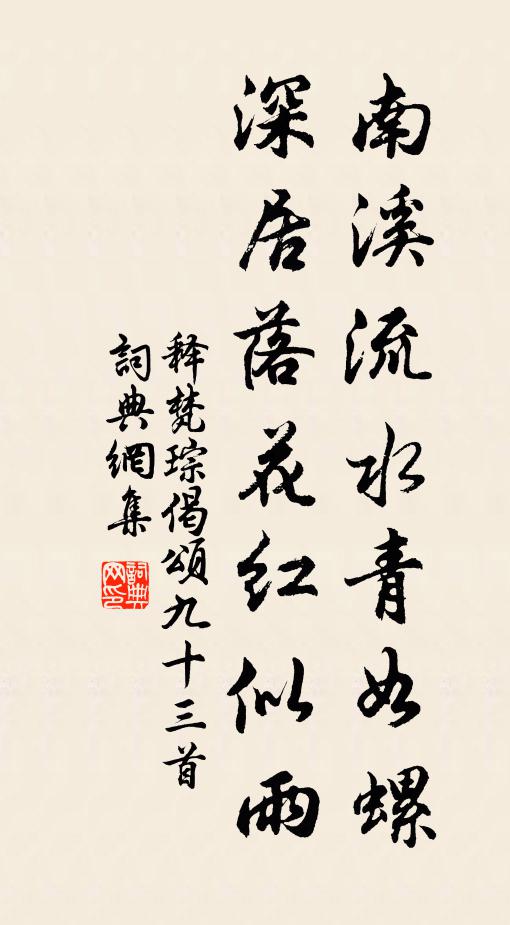 南溪流水青如螺
深居落花红似雨
释梵琮偈颂九十三首
詞典網集
詞典
网印